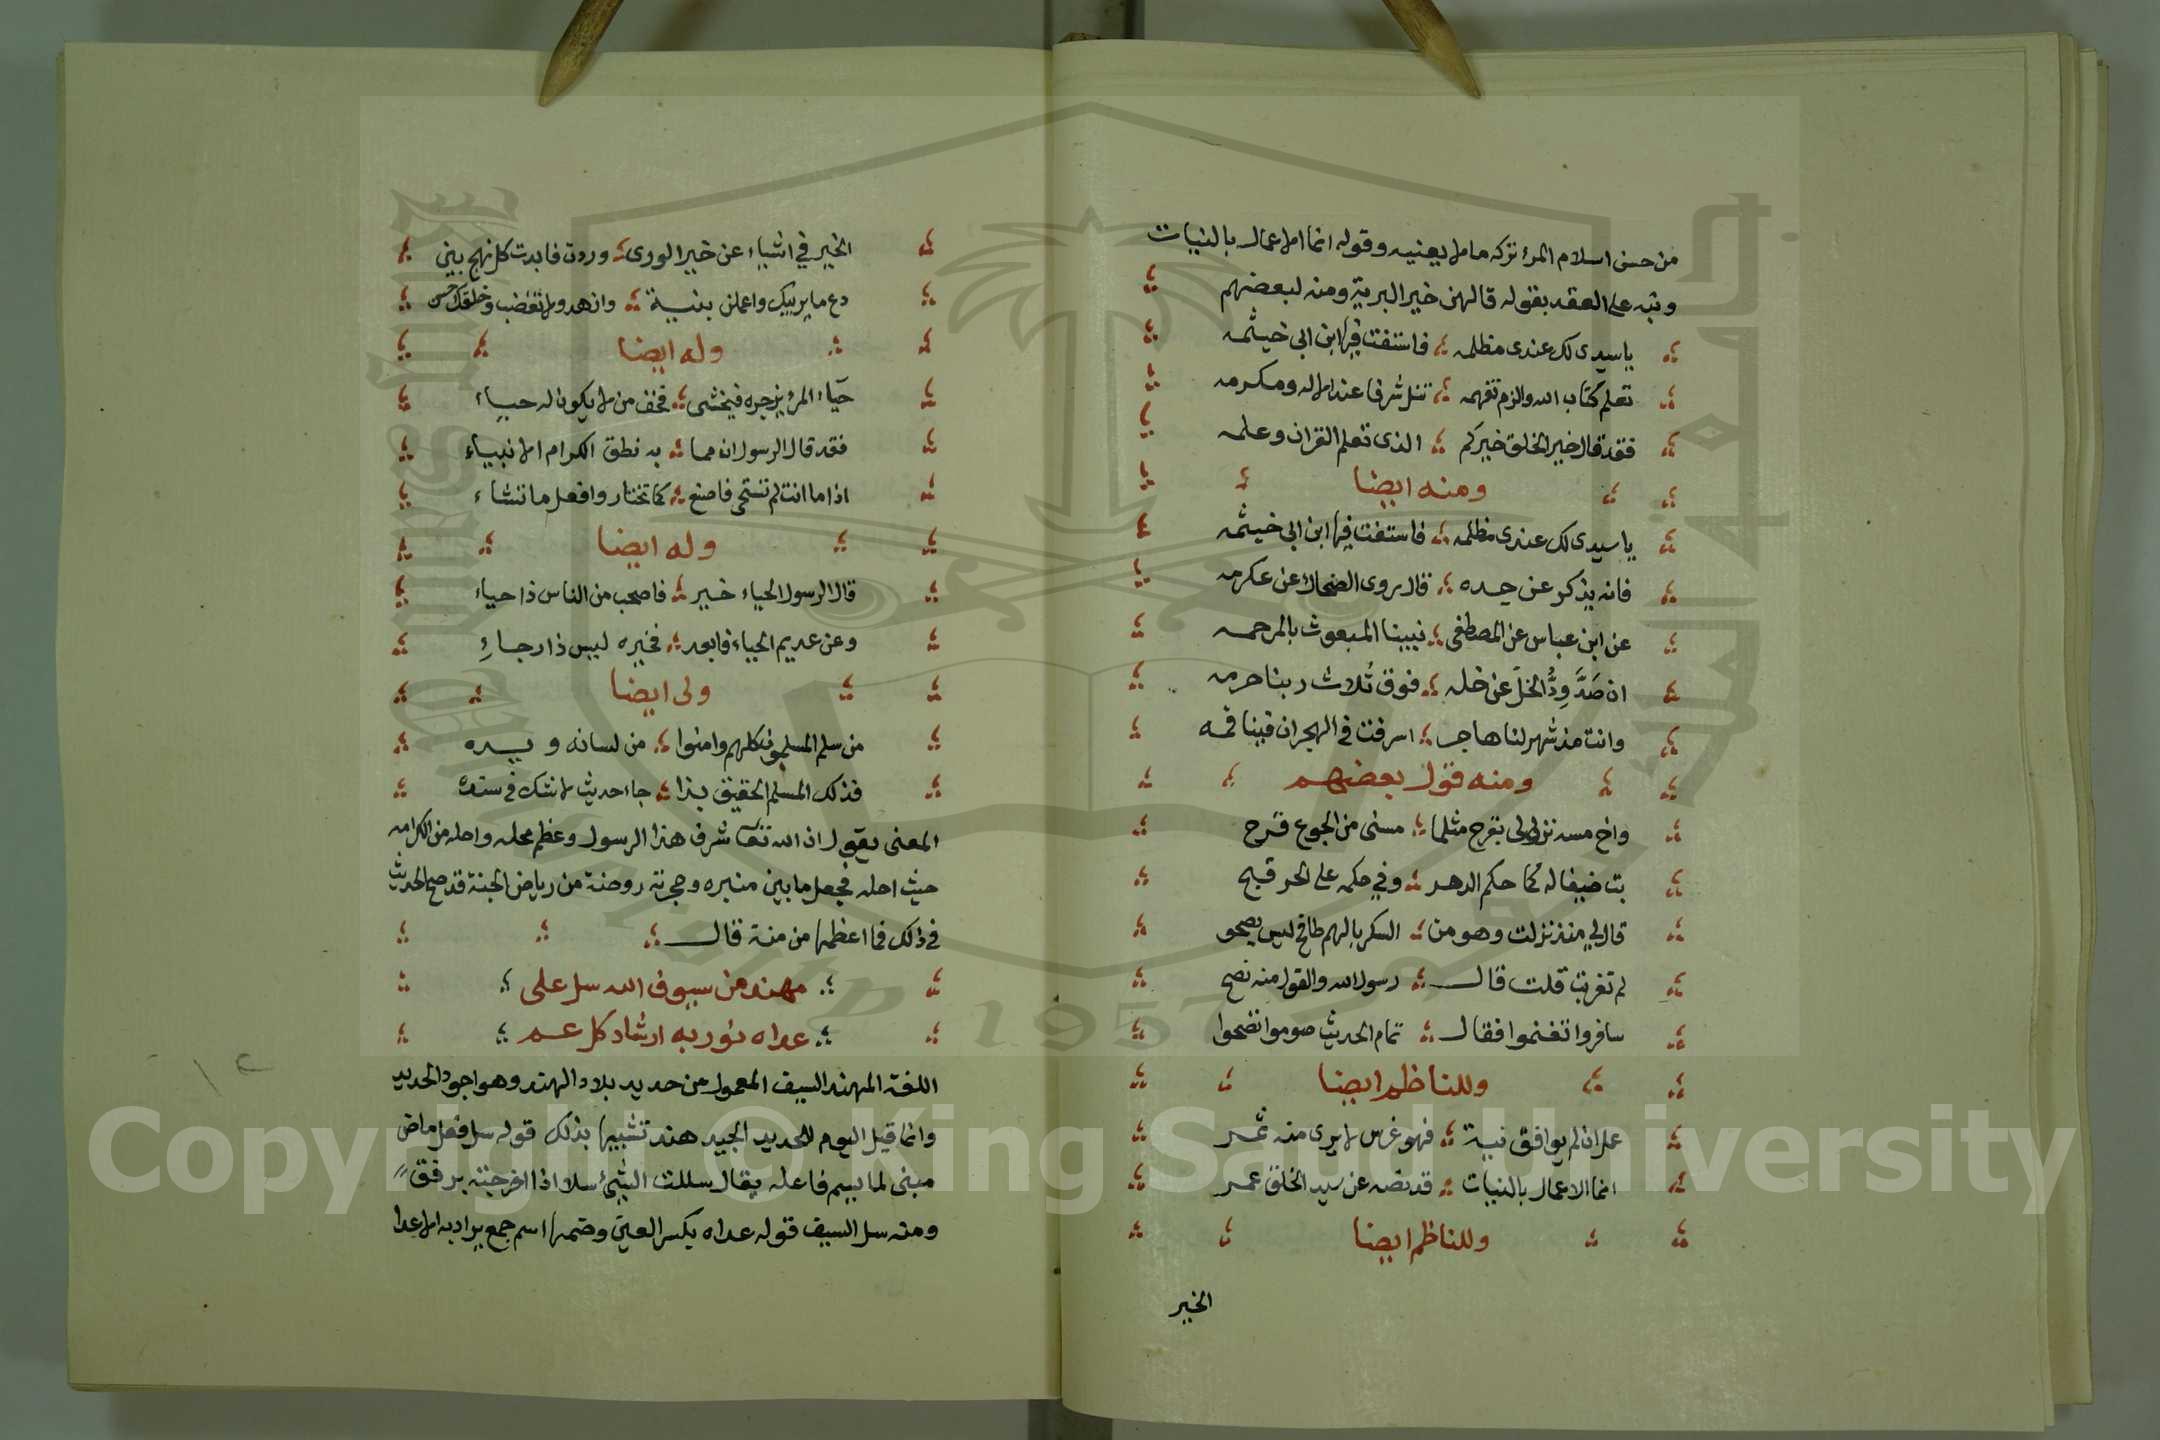 من حسن اسلام المرء تركه ما لا يعنيه وقوله انما الاعمال بالنيات
ونبه على العقد بقوله قالهن خير البرية ومنه لبعضهم
يا سيدى لك عندى مظلمه فاستفت فيها ابن ابى خيثمه
تعلم كتاب الله والزم تفهمه تنل شرفا عند الاله ومكرمه
فقد قال خير الخلق خيركم الذى تعلم القران وعلمه
ومنه ايضا
يا سيدى لك عندى مظلمه فاستفت فيها ابن ابى خيثمه
فانه يذكر عن جده قال روى الضحاك عن عكرمه
عن ابن عباس عن المصطفى نبينا المبعوث بالمرحمه
ان صَدَّ وِدُّ الخل عن خله فوق ثلاث ربنا حرمه
وانت مذ شهر لنا هاجر اسرفت فى الهجران فينا فمه
ومنه قول بعضهم
واخ مسه نزولى بقرح مثلما مسنى من الجوع قرح
بت ضيفا له كما حكم الدهر وفي حكمه على الحر قبح
قال لي منذ نزلت وهو من السكر بالهم طافح ليس يصحو
لم تغربت قلت قال رسول الله والقول منه نصح
سافروا تغنموا فقال تمام الحديث صوموا تصحوا
وللناظم ايضا
عمل ان لم يوافق نية فهو غرس لا يرى منه ثمر
انما الاعمال بالنيات قد نصه عن سيد الخلق عمر
وللناظم ايضا
الخير
الخير في اشياء عن خير الورى وردت فابدت كل نهج بين
دع ما يريبك واعملن بنية وازهد ولا تغضب وخلقك حسن
وله ايضا
حياء المرء يزجره فيخشى فخف من لا يكون له حياء
فقد قال الرسول ان مما به نطق الكرام الانبياء
اذا ما انت لم تستحى فاصنع كما تختار وافعل ما تشاء
وله ايضا
قال الرسول الحياء خير فاصحب من الناس ذا حياء
وعن عديم الحياء فابعد فخيره ليس ذا رجاءِ
ولى ايضا
من سلم المسلمون كلهم وامنوا من لسانه و يده
فذلك المسلم الحقيق بذا جا احديث لا شك فى سنده
المعنى يقول ان الله تعا شرف هذا الرسول وعظم محله واحله من الكرامه
حيث احله فجعل ما بين منبره وحجرته روضة من رياض الجنة قد صح الحديث
فى ذلك فما اعظمها من منة قال
مهند من سيوف الله سل على
عداه نور به ارشاد كل عم
اللغة المهند السيف المعمول من حديد بلاد الهند وهو اجود الحديد
وانما قيل اليوم للحديد الجيد هند تشبيها بذلك قوله سل فعل ماض
مبنى لما لم يسم فاعله يقال سللت الشئ سلا اذا اخرجته برفق
ومنه سل السيف قوله عداه بكسر العين وضمها اسم جمع يراد به الاعدا